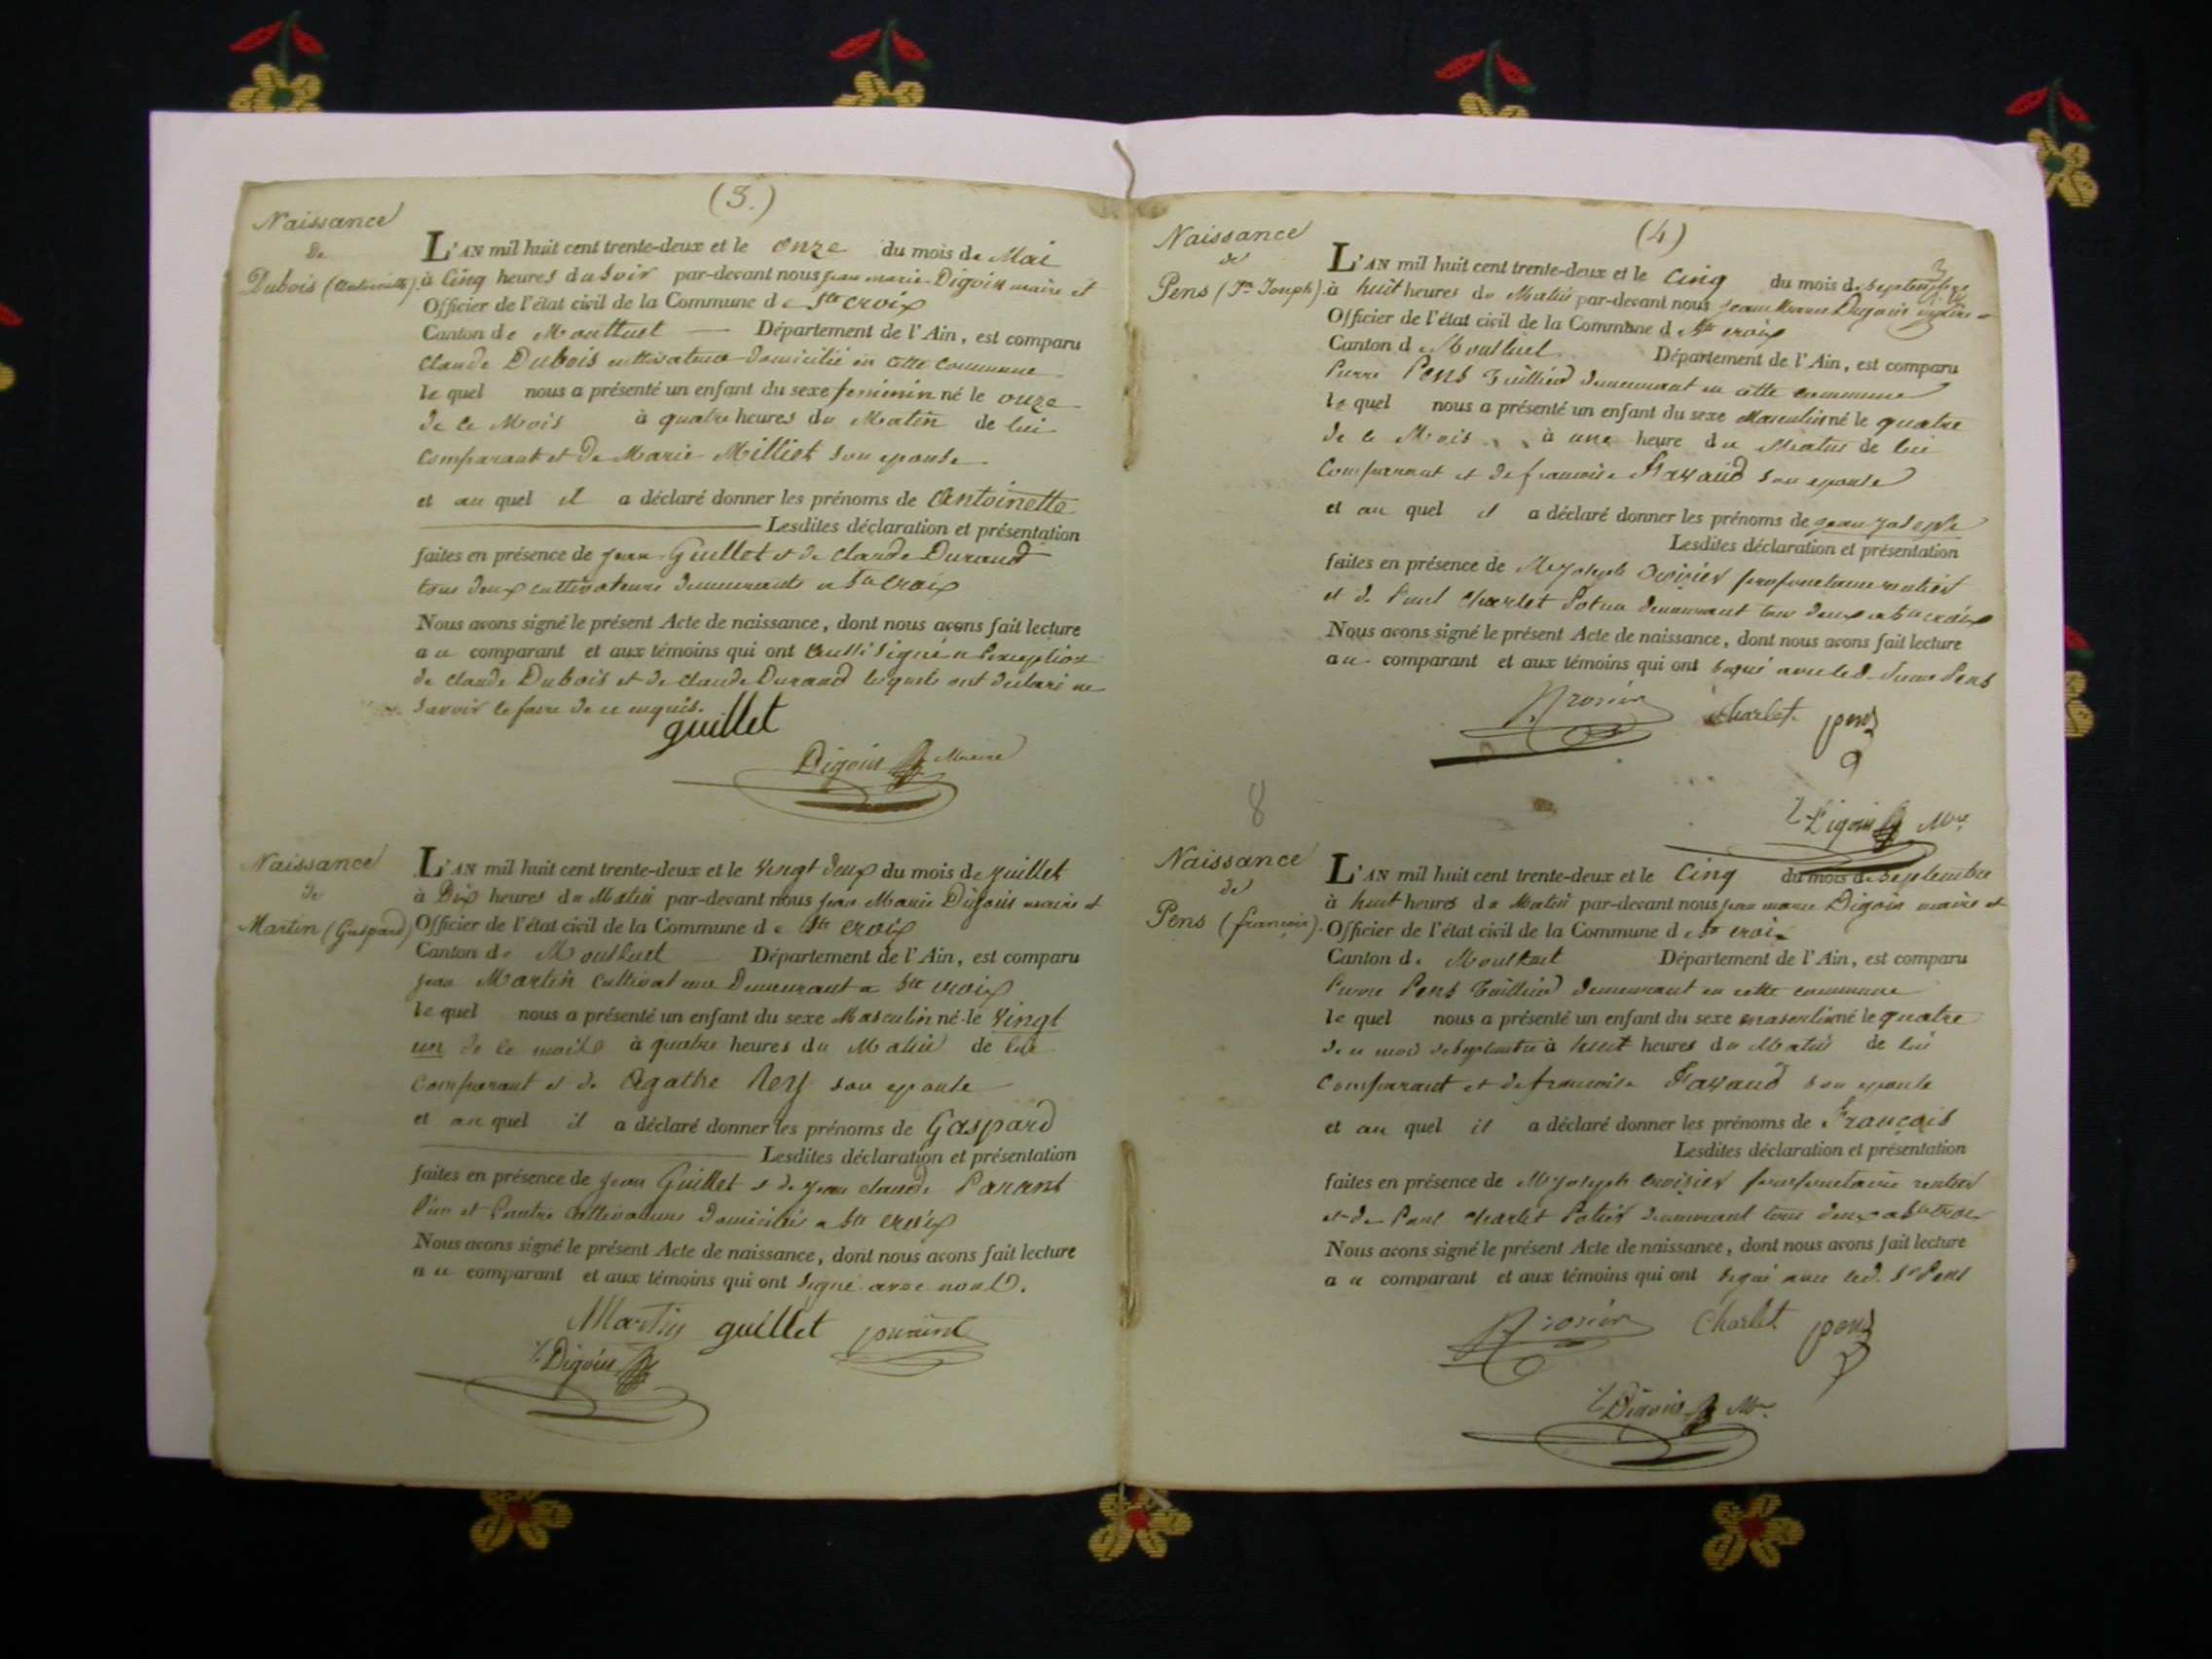 (3.)
Naissance
De
Dubois (Antoinette).
L'AN mil huit cent trente-deux et le onze du mois de Mai
à Cinq heures du soir par-devant nous jean marie Digoin maire et
Officier de l'état civil de la Commune de Ste croix
Canton de Montluel Département de l'Ain, est comparu
Claude Dubois cultivateur domicilié en cette commune
le quel nous a présenté un enfant du sexe feminin né le onze
de ce Mois à quatre heures du Matin de lui
comparant et de Marie Milliet son epouse
et au quel il a déclaré donner les prénoms de Antoinette
Lesdites déclaration et présentation
faites en présence de jean Guillet et de claude Durand
tous deux cultivateurs demeurants a Ste Croix
Nous avons signé le présent Acte de naissance, dont nous avons fait lecture
au comparant et aux témoins qui ont aussi signé a l'exception
de claude Dubois et de claude Durand lesquels ont déclaré ne
savoir le faire de ce enquis.
guillet
Digoin Maire
Naissance
de
Martin (Gaspard)
L'AN mil huit cent trente-deux et le vingt deux du mois de juillet
à Dix heures du Matin par-devant nous jean Marie Digoin maire et
Officier de l'état civil de la Commune de Ste croix
Canton de Montluel Département de l'Ain, est comparu
jean Martin Cultivateur Demeurant a Ste croix
le quel nous a présenté un enfant du sexe Masculin né le vingt
un de ce mois à quatre heures du Matin de lui
comparant et de Agathe Rey son epouse
et au quel il a déclaré donner les prénoms de Gaspard
Lesdites déclaration et présentation
faites en présence de jean Guillet et de jean claude Parant
l'un et l'autre Cultivateurs domiciliés a Ste croix
Nous avons signé le présent Acte de naissance, dont nous avons fait lecture
au comparant et aux témoins qui ont signé avec nous.
Martin guillet
Digoin
(4)
Naissance
de
Pens (Jn Joseph).
L'AN mil huit cent trente-deux et le Cinq du mois de septembre
à huit heures du Matin par-devant nous jean Marie Digoin maire et
Officier de l'état civil de la Commune d Ste croix
Canton d Montluel Département de l'Ain, est comparu
Pierre Pens Tuillier demeurant en cette commune
le quel nous a présenté un enfant du sexe Masculin né le quatre
de ce Mois à une heure du Matin de lui
Comparant et de francoise Favaud son epouse
et au quel il a déclaré donner les prénoms de jean joseph
Lesdites déclaration et présentation
faites en présence de Mr joseph proprietaire rentier
et de Paul Charlet Potier demeurant tous deux a Ste croix
Nous avons signé le présent Acte de naissance, dont nous avons fait lecture
au comparant et aux témoins qui ont signé avec led. Pens
Charlet pens
Digoin Mre
8
Naissance
de
Pens (françois).
L'AN mil huit cent trente-deux et le Cinq du mois de septembre
à huit heures du Matin par-devant nous jean marie Digoin maire et
Officier de l'état civil de la Commune d Ste croix
Canton de Montluel Département de l'Ain, est comparu
Pierre Pens Tuillier demeurant en cette commune
le quel nous a présenté un enfant du sexe masculin né le quatre
de ce mois de septembre à huit heures du Matin de lui
Comparant et de francoise Favaud son epouse
et au quel il a déclaré donner les prénoms de François
Lesdites déclaration et présentation
faites en présence de Mr joseph proprietaire rentier
et de Paul Charlet Potier demeurant tous deux a Ste croix
Nous avons signé le présent Acte de naissance, dont nous avons fait lecture
au comparant et aux témoins qui ont signé avec led. Sr Pens
Charlet pens
Digoin Mre